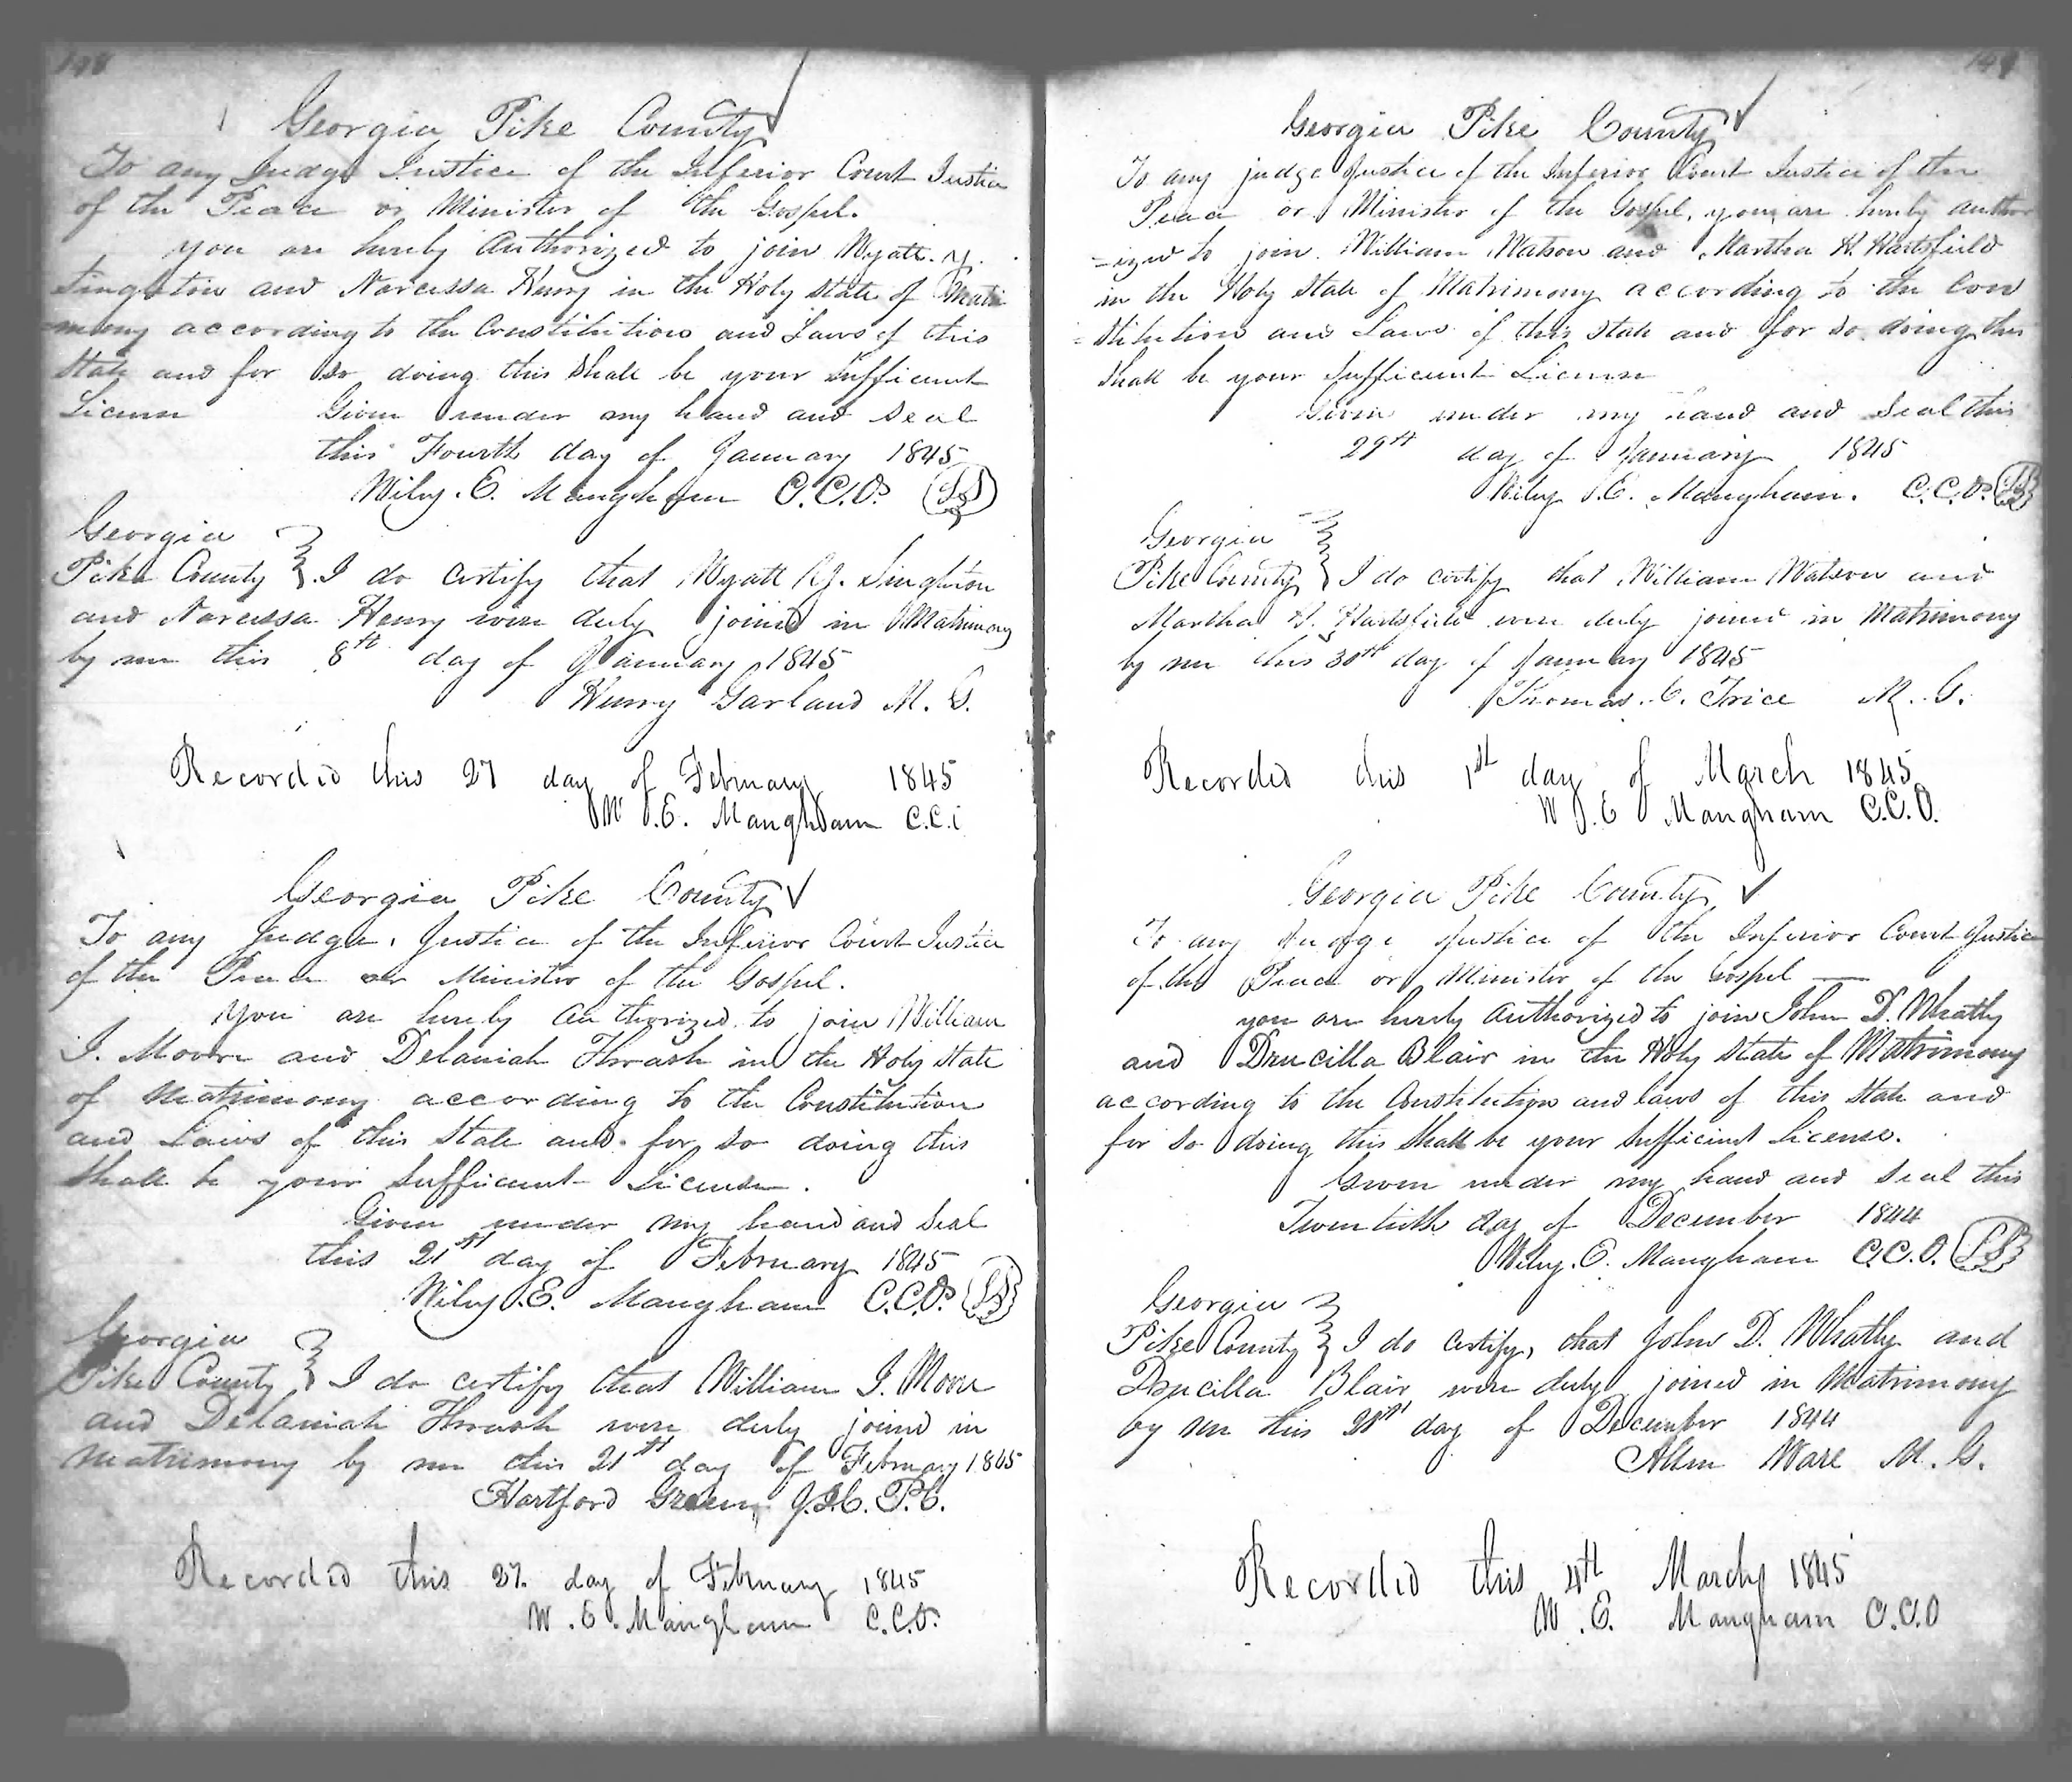 148
Georgia Pike County
To any Judge Justice of the Inferior Court Justice
of the Peace or Minister of the Gospel.
you are hereby Authorized to join Wyatt. Y.
Singleton and Narcissa Henry in the Holy state of Matri
=mony according to the Constitution and Laws of this
State and for so doing this shall be your sufficient
License Given under my hand and seal
this Fourth day of January 1845
Wiley. E. Mangham C.C.O. LS
Georgia
Pike County I do certify that Wyatt Y. Singleton
and Narcissa Henry were duly joined in Matrimony
by me this 8th day of January 1845
Henry Garland M. G.
Recorded this 27 day of February 1845
W. E. Mangham C.C.
Georgia Pike County
To any Judge, Justice of the Inferior Court Justice
of the Peace or Minister of the Gospel.
You are hereby authorized to join William
J. Moore and Delaniah Thrash in the Holy State
of Matrimony according to the Constitution
and Laws of this State and for so doing this
shall be your sufficient License.
Given under my hand and seal
this 21st day of February 1845
Wiley. E. Mangham C.C.O. LS
Georgia
Pike County I do certify that William J. Moore
and Delaniah Thrash were duly joined in
Matrimony by me this 21st day of February 1845
Hartford Green, J.I.C. P.C.
Recorded this 27. day of February 1845
W. E. Mangham C.C.O.
149
Georgia Pike County
To any judge Justice of the Inferior Court Justice of the
Peace or Minister of the Gospel, you are hereby author
=ized to join William Watson and Martha H. Hartsfield
in the Holy State of Matrimony according to the Con
=stitution and Laws of this State and for so doing this
shall be your sufficient License
Given under my hand and seal this
29th day of January 1845
Wiley. E. Mangham. C.C.O. LS
Georgia
Pike County I do certify that William Watson and
Martha H. Hartsfield were duly joined in Matrimony
by me this 30th day of January 1845
Thomas. C. Trice M. G.
Recorded this 1st day of March 1845
W. E Mangham C.C.O.
Georgia Pike County
To any Judge Justice of the Inferior Court Justice
of the Peace or Minister of the Gospel
you are hereby authorized to join John D. Whatly
and Drucilla Blair in the Holy State of Matrimony
according to the Constitution and laws of this State and
for so doing this shall be your sufficient License.
Given under my hand and seal this
Twentieth day of December 1844
Wiley. E. Mangham C.C.O. LS
Georgia
Pike County I do certify, that John D. Whatly and
Drucilla Blair were duly joined in Matrimony
by me this day of December 1844
Allen Ware M. G.
Recorded this 4th March 1845
W. E. Mangham C.C.O